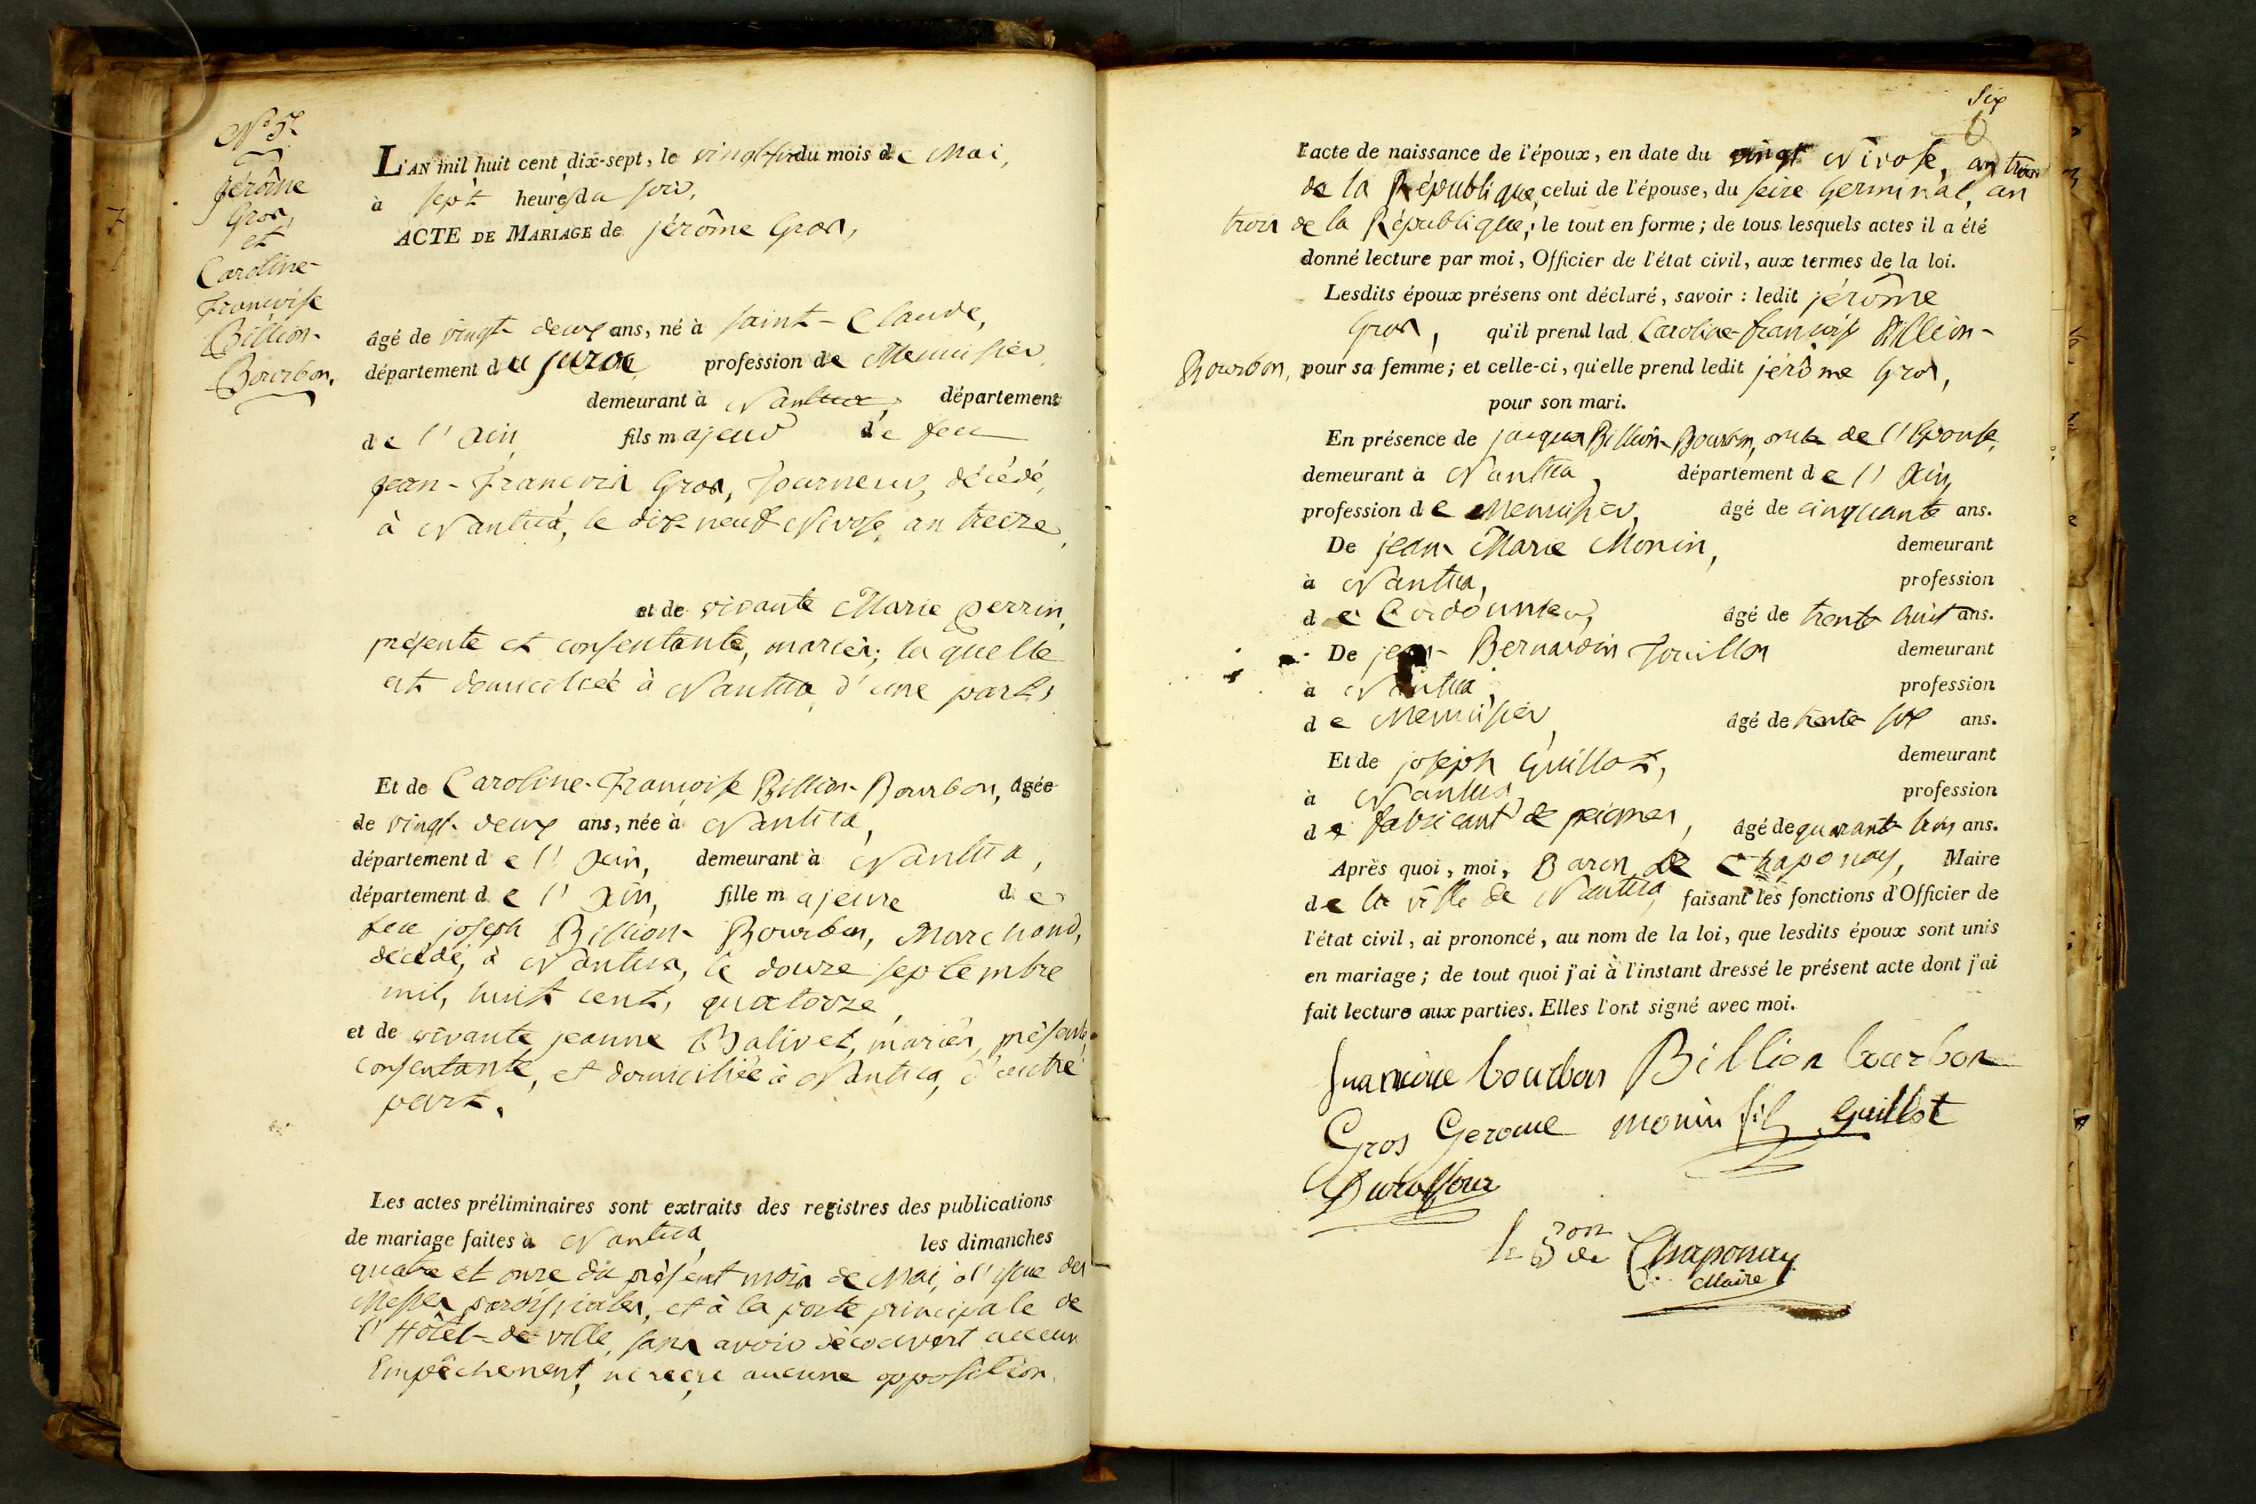 N.° 5.
Jérôme
Gros,
et
Caroline-
Françoise
Billion-
Bourbon.
L'AN mil huit cent dix-sept, le vingt-six du mois de Mai,
à sept heures du soir,
ACTE DE MARIAGE de jérôme Gros,
âgé de vingt-deux ans, né à Saint-Claude,
département du Jura, profession de Menuisier,
demeurant à Nantua, département
de l'Ain, fils majeur de feu
Jean-François Gros, Tourneur, décédé,
à Nantua, le dix neuf Nivose, an treize,
et de vivante Marie Perrin,
présente et consentante, mariés; laquelle
est domiciliée à Nantua, d'une part;
Et de Caroline-Françoise Billion-Bourbon, âgée
de vingt-deux ans, née à Nantua,
département de l'Ain, demeurant à Nantua,
département de l'Ain, fille majeure de
feu joseph Billion-Bourbon, Marchand,
décédé, à Nantua, le douze septembre
mil, huit cent, quatorze,
et de vivante jeanne Balivet, mariés, présente,
consentante, et domiciliée à Nantua, d'autre
part.
Les actes préliminaires sont extraits des registres des publications
de mariage faites à Nantua, les dimanches
quatre et onze du présent mois de Mai, à l'issue des
Messes paroissiales, et à la porte principale de
l'Hôtel-de-ville, sans avoir découvert aucun
Empêchement, ni reçu aucune opposition.
Six
6
l'acte de naissance de l'époux, en date du vingt Nivose, an trois
de la République, celui de l'épouse, du seize Germinal, an
trois de la République; le tout en forme; de tous lesquels actes il a été
donné lecture par moi, Officier de l'état civil, aux termes de la loi.
Lesdits époux présens ont déclaré, savoir : ledit jérôme
Gros, qu'il prend lad. Caroline-françoise Billion-
Bourbon, pour sa femme; et celle-ci, qu'elle prend ledit jérôme Gros,
pour son mari.
En présence de jacques Billion-Bourbon, oncle de l'Epouse,
demeurant à Nantua, département de l'Ain,
profession de Menuisier, âgé de cinquante ans.
De jean-Marie Monin, demeurant
à Nantua, profession
de Cordonnier, âgé de trente huit ans.
De jean-Bernardin Touillon demeurant
à Nantua, profession
de Menuisier, âgé de trente six ans.
Et de joseph Guillot, demeurant
à Nantua, profession
de fabricant de peignes, âgé de quarante trois ans.
Après quoi, moi, Baron de Chaponay, Maire
de la ville de Nantua, faisant les fonctions d'Officier de
l'état civil, ai prononcé, au nom de la loi, que lesdits époux sont unis
en mariage; de tout quoi j'ai à l'instant dressé le présent acte dont j'ai
fait lecture aux parties. Elles l'ont signé avec moi.
bourbon Billion bourbon
Gros Gerome monin fils Guillot
le Bon de Chaponay
Maire